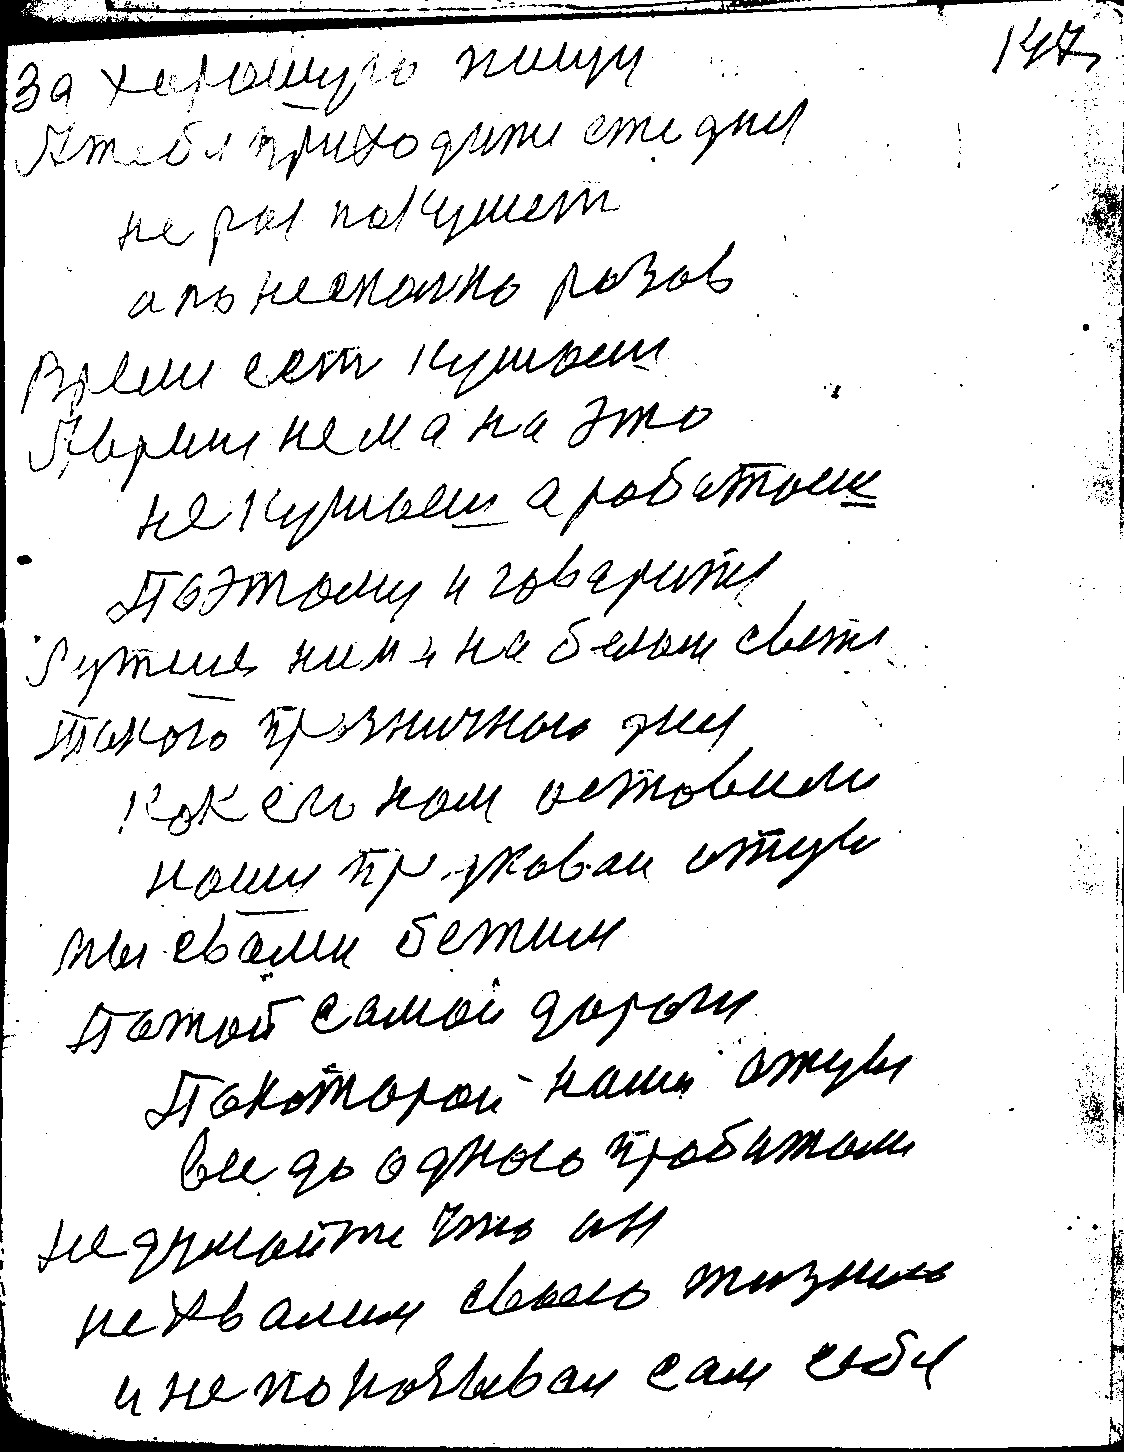 147
За хорошую пищу
Ятебя приходитси стедня
не раз покушет
апонесколко разов
Время ест кушоеш
Явремя нема на это
не кушоеш аработоеш
Поэтому и говорится
Лутше нима на белом свети
такого празничного дня
Кок его нам оставили
наши предковаи отцы
мы свами бежим
Потой самой дороги
Покоторой наши отцы
все до одного пробежали
не думойте что он
не хвалил своею жизнею
и не показывал сам себя